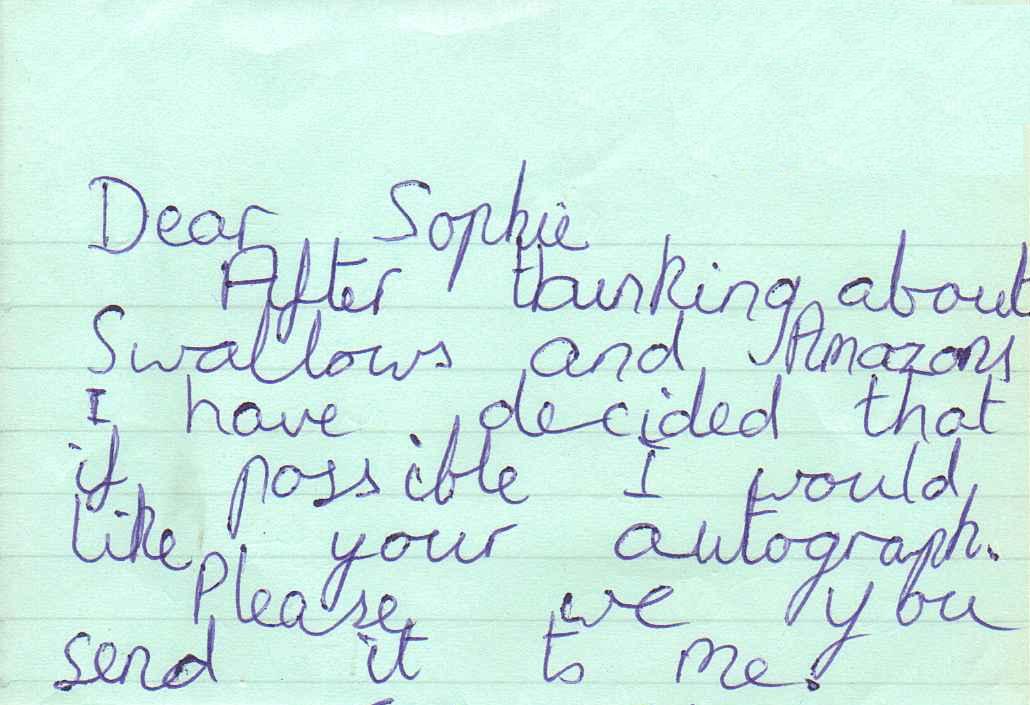 Dear Sophie
After thinking about
Swallows and Amazons
I have decided that
if possible I would
like your autograph.
Please we you
send it to me.